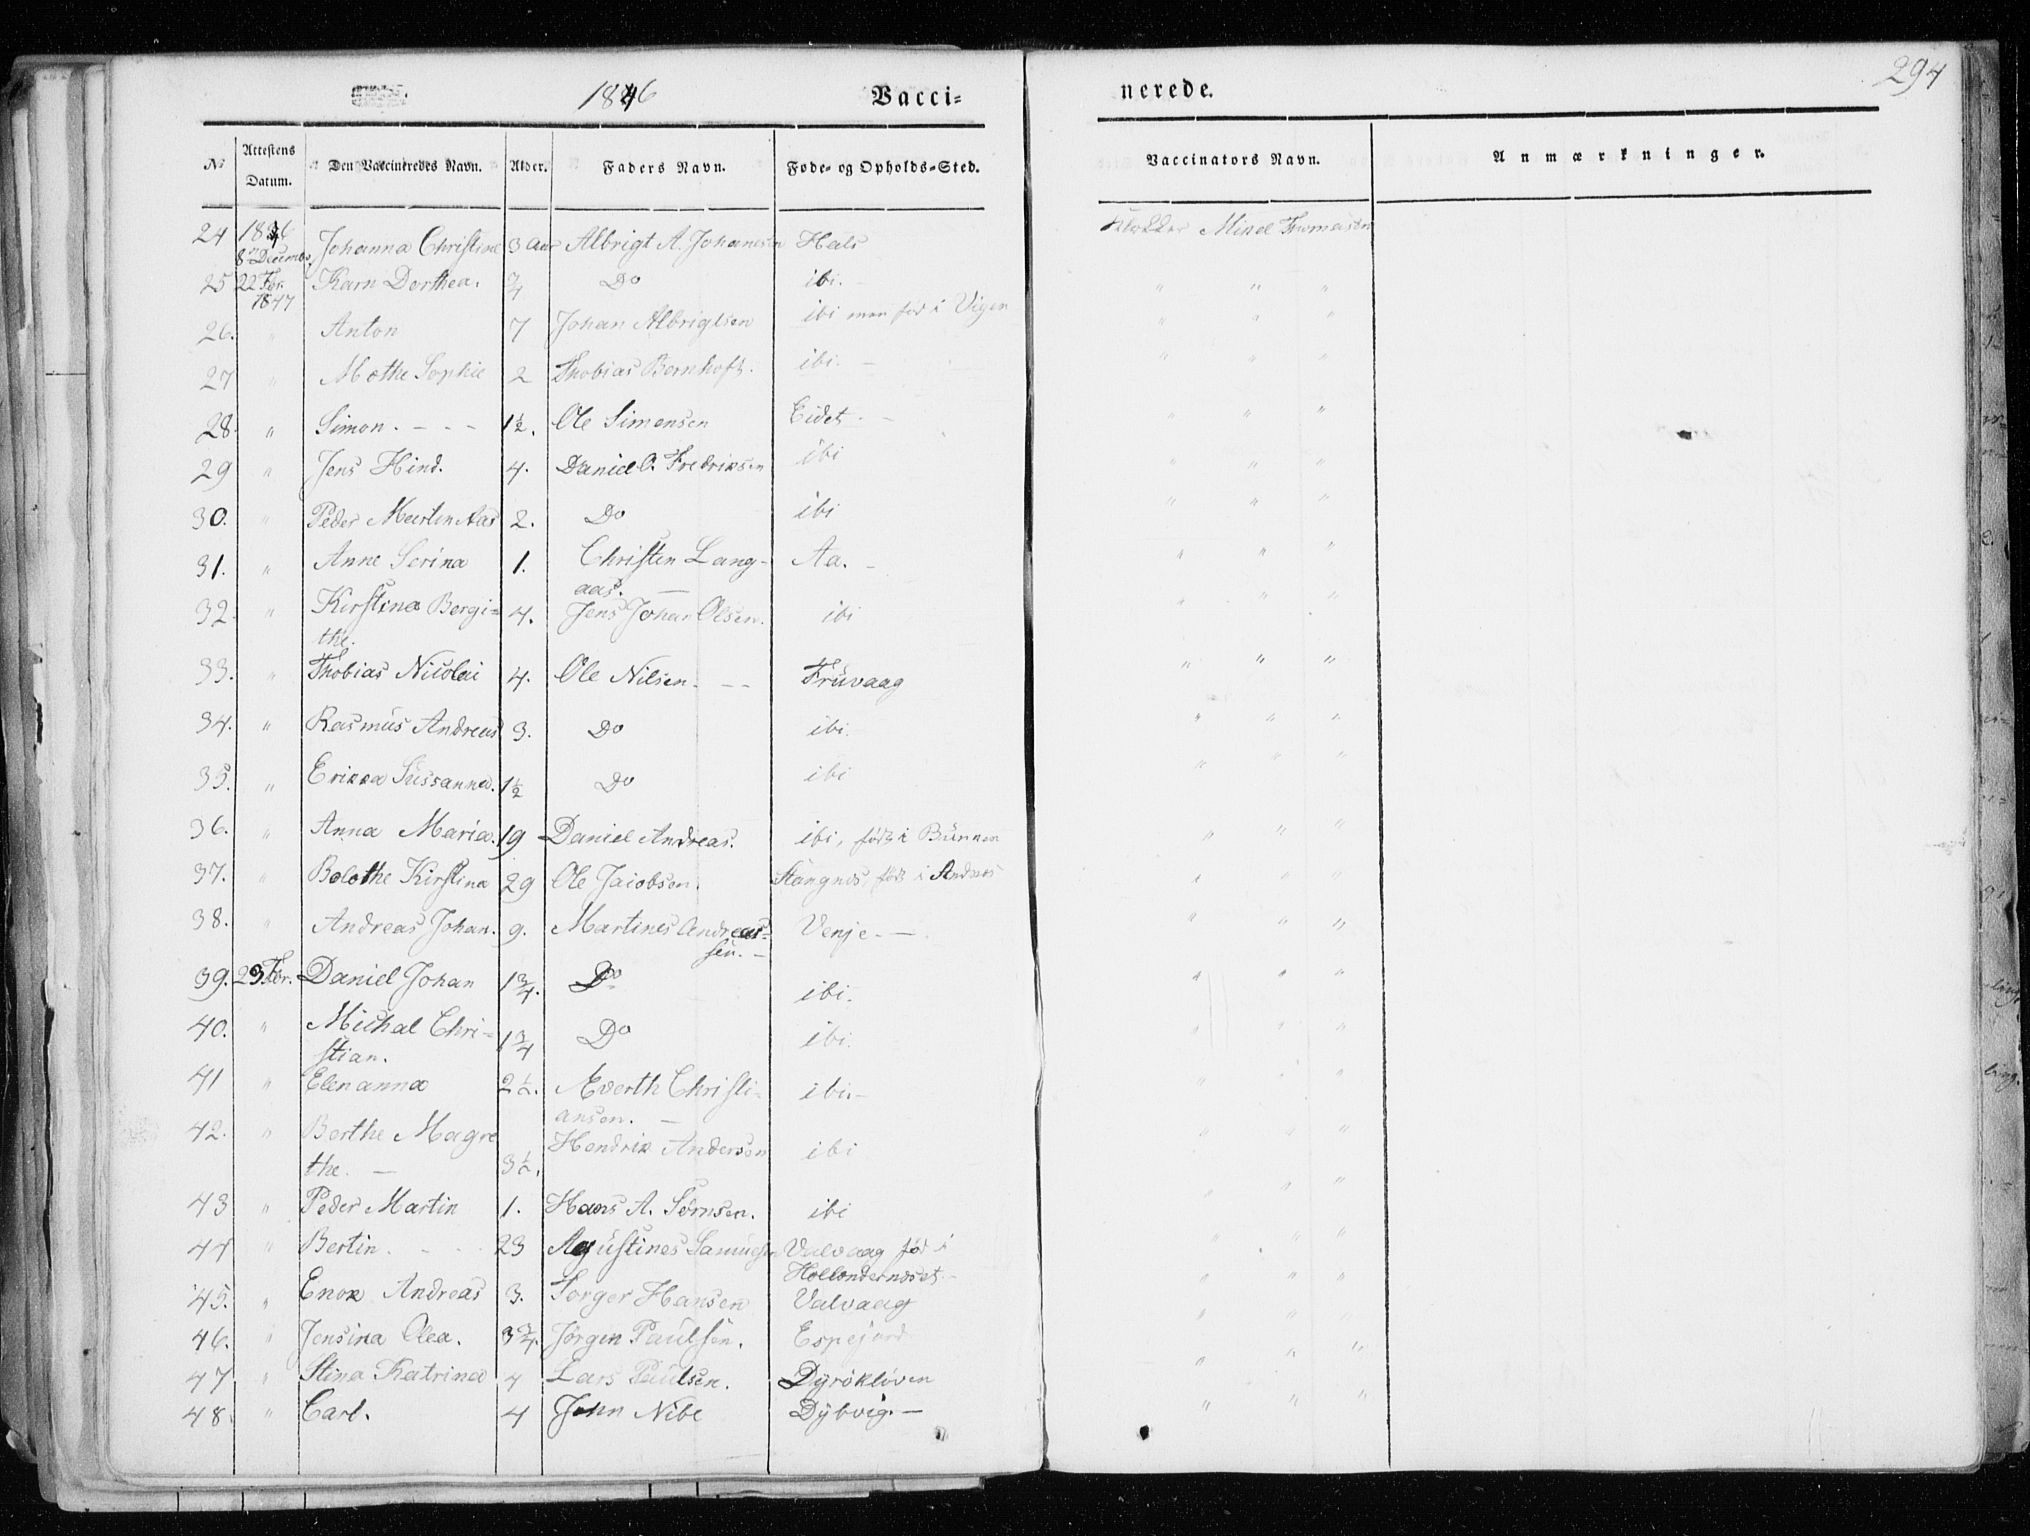 294
1846 Vacci= nerede.
No Attestens Datum. Den Vaccineredes Navn. Alder. Faders Navn. Føde= og Opholds=Sted. Vaccinators Navn. Anmærkninger.
24 1846 8de Decembr Johanna Christine 3 Aar Albrigt A. Johanesen Hals Klokker Mikel Thomesen
25 22 Fbr. 1847 Karn Dorthea. 3/4 Do ibi. — " " "
26. " Anton 7 Johan Albrigtsen ibi men fød i Vigen " " "
27 " Methe Sophie 2 Thobias Bernhoft. ibi. — " " "
28. " Simon. - - - 1½. Ole Simonsen Eidet - " " "
29 " Jens Hind. 4. Daniel O. Fredriksen ibi " " "
30. " Peder Martin Aas 2. Do ibi " " "
31. " Anne Serina 1. Christen Lang-
aas. — Aa. - " " "
32. " Kirstina Bergi=
the. 4. Jens Johan Olsen. ibi " " "
33. " Thobias Nicolai 4. Ole Nilsen. - - Fruvaag " " "
34. " Rasmus Andreas 3. Do ibi. " " "
35. " Erikka Sussanna. 1½ Do ibi " " "
36. " Anna Maria. 19 Daniel Andreas. ibi, født i Bunnen " " "
37. " Bolethe Kirstina 29 Ole Jacobsen. Stangnes, født i Andnes " " "
38. " Andreas Johan. 9. Martines Andreas=
sen. — Venje. — " " "
39. 23 Fbr. Daniel Johan 1¾. Do ibi. " " "
40. " Michal Chri=
stian. 1¾ Do ibi. " " "
41 " Elenanna 2½. Everth Christi-
ansen. — ibi. - " " "
42. " Berthe Magre
the. — 3½. Hendrik Andersen ibi " " "
43 " Peder Martin 1. Hans A. Sørnsen. ibi " " "
44 " Bertin. - - - 23 Agustines Samuelsen Valvaag fød i
Hollendernæset. - " " "
45. " Enok Andreas 3. Torger Hansen Valvaag " " "
46. " Jensina Olea. 3¾. Jørgen Paulsen. Espejord " " "
47 " Stina Katrina 4 Lars Paulsen. Dyrøkløven " " "
48. " Carl. 4 John Nibe Dybvig. — " " "